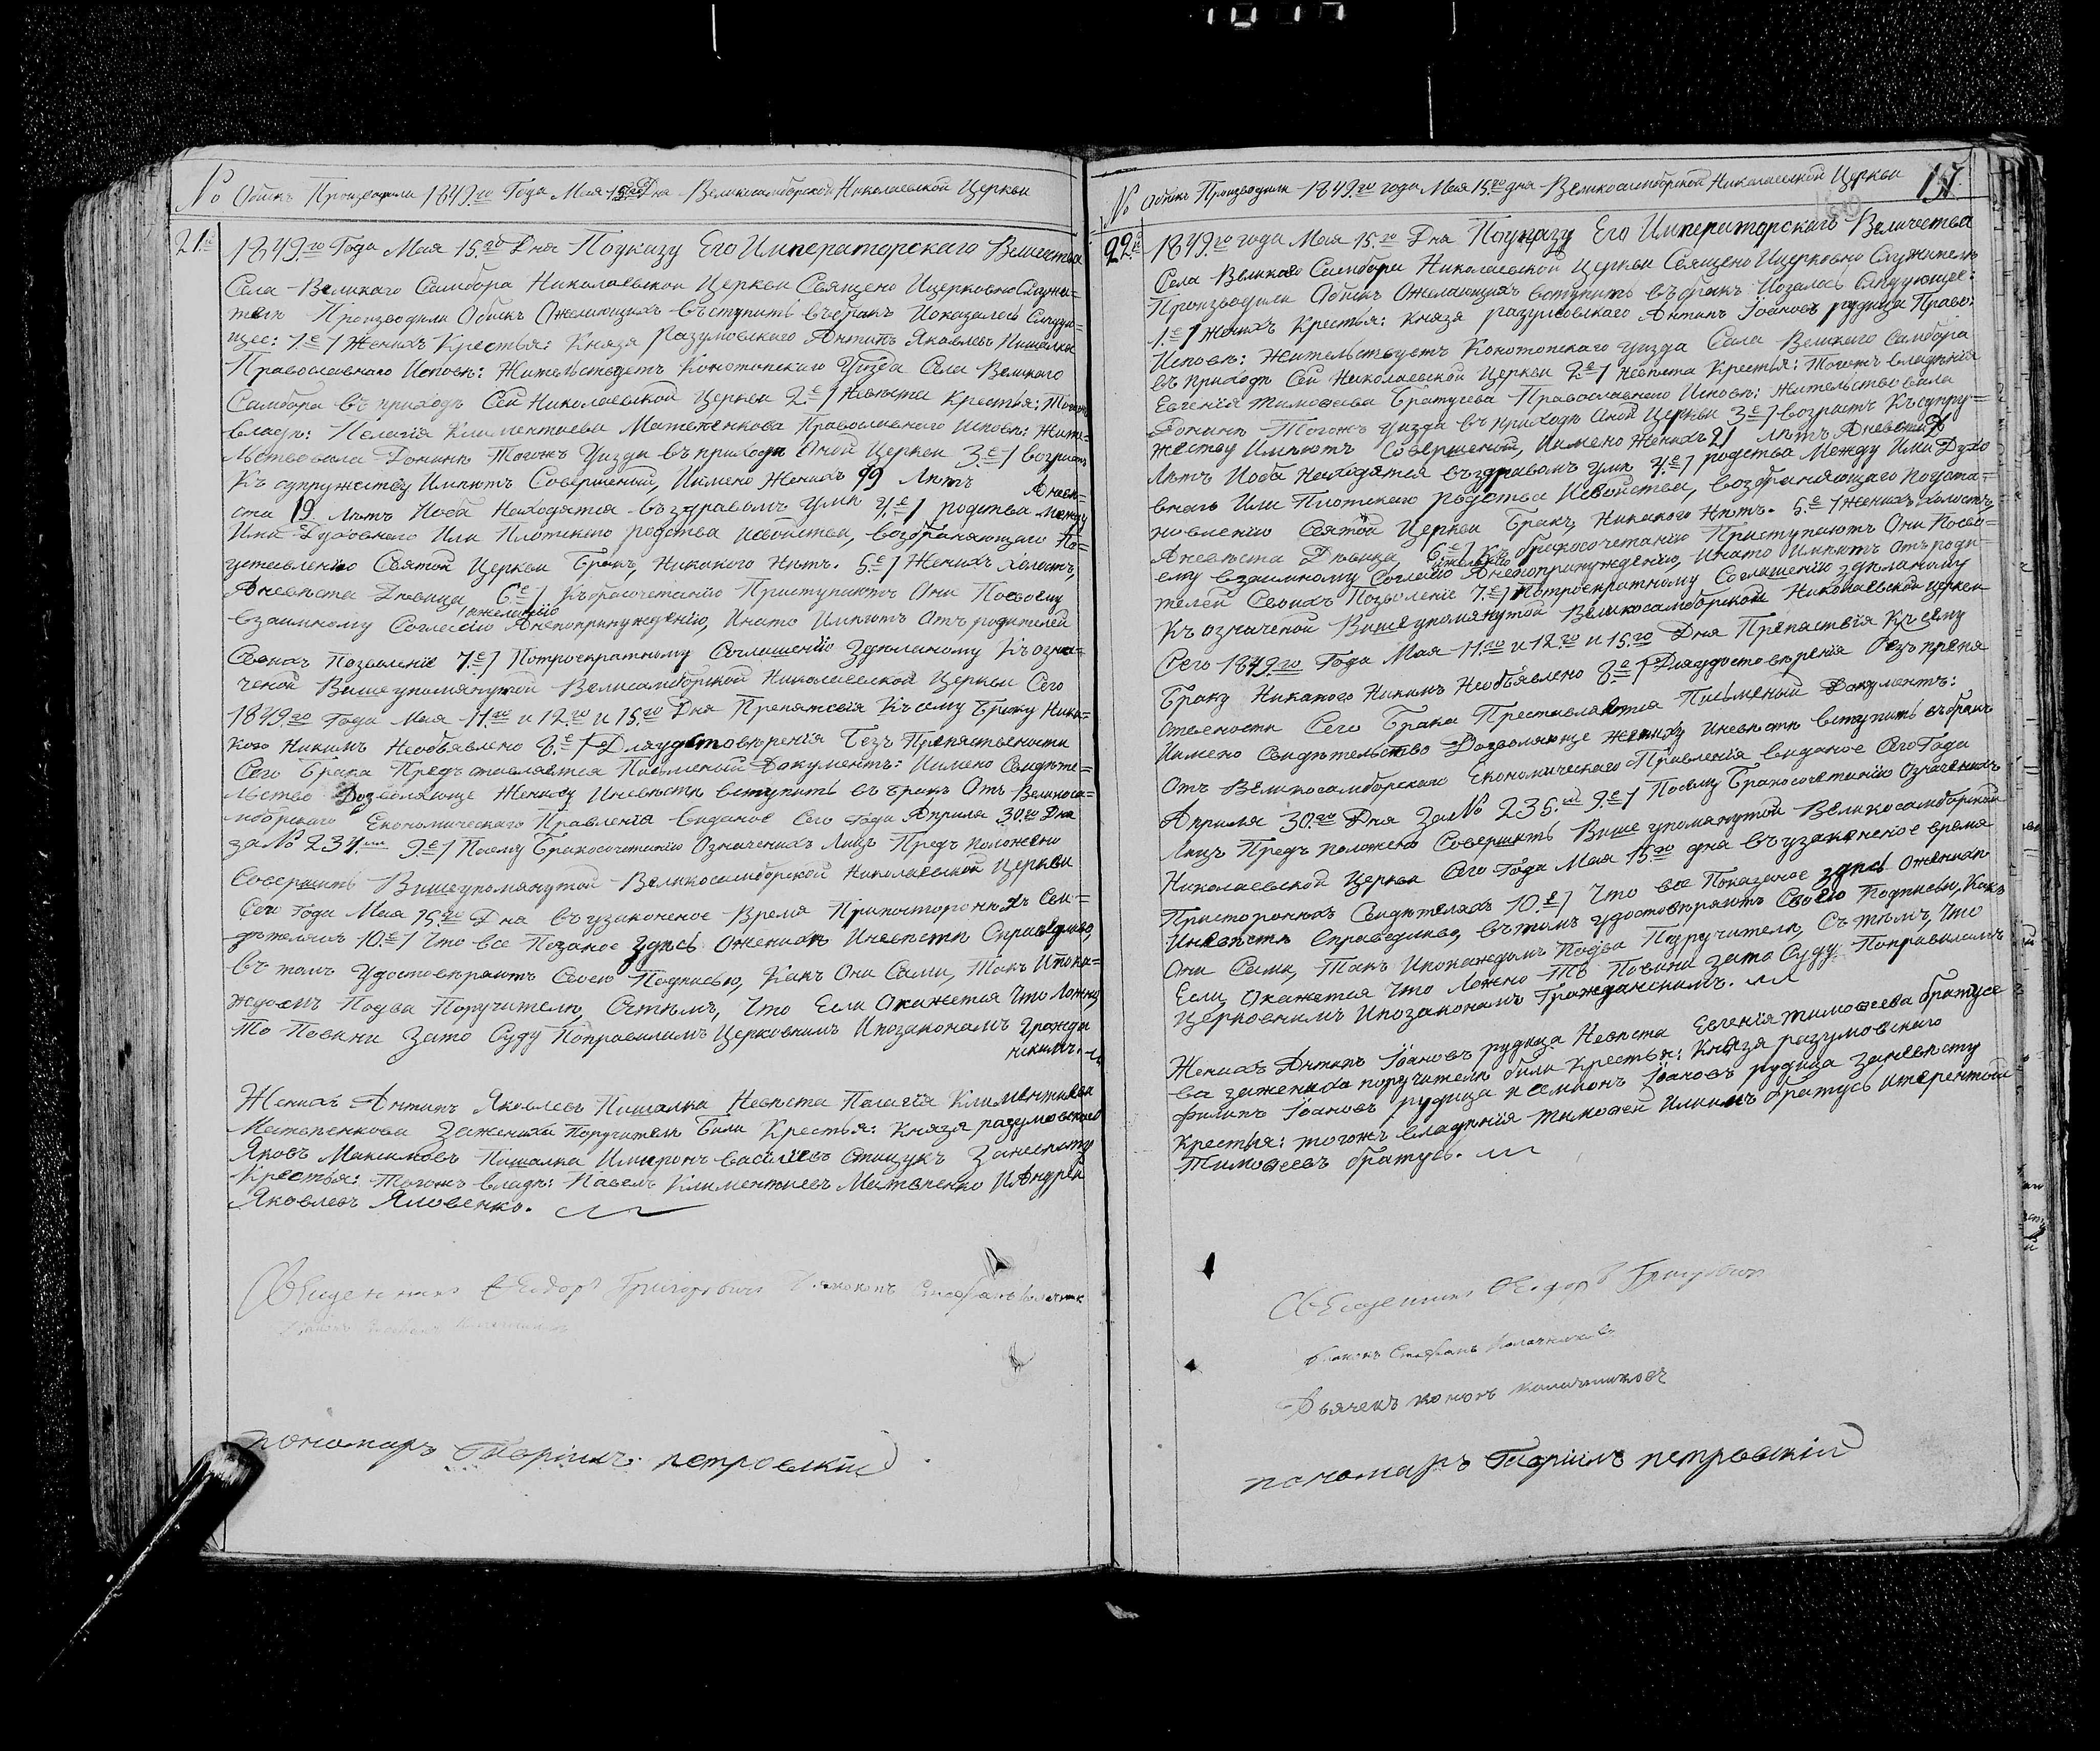 № Обискъ Производили 1849.го Года Мая 15го Дня Великосамборской Николаевской Церкви
21.й
1849.го Года Мая 15.го Дня Поуказу Его Императорскаго Величества
Села Великаго Самбора Николаевской Церкви Священо Ицерковно Служи=
тели Производили Обискъ Ожелающихъ въступить въбракъ Показалось Слѣдую=
щее: 1.е] Женихъ Крестья: Князя Разумовскаго Антипъ Яковлевъ Пищалка
Православнаго Исповѣ: Жительствуетъ Конотопскаго Уизда Села Великаго
Самбора въ приходѣ Сей Николаевской Церкви 2.е] Невѣста крестья: Тогожъ
владѣ: Пелагія Климентиева Матвѣенкова Православнаго Исповѣ: Жите=
льствовала Донинѣ Тогожъ Уизда въ приходѣ Оной Церкви 3.е] возрастъ
Къ супружеству Имѣютъ Совершеной, Иимено Женихъ 19 Лѣтъ Аневѣ=
ста 19 лѣтъ Иоба Находятся въздравомъ Умѣ 4.е] родства между
Ими Духовнаго Или Плотскаго родства Исвойства, возбраняющаго По=
установленію Святой Церкви Бракъ, Никакого Нѣтъ. 5.е] Женихъ холостъ,
Аневѣста Дѣвица 6.е] Къбракосочетанію Приступаютъ Они Посвоему
взаимному Согласію Ижеланію Анепопринужденію, Инато Имѣютъ Отъ родителей
Своихъ Позволеніе 7.е] Потроекратному Соглашенію Здѣланому Къ озна=
ченой Вишеупомянутой Велисамборской Николаевской Церкви Сего
1849го Года Мая 11.го и 12.го и 15.го Дня Препятсвія Къ сему Браку Ника=
кого Никимъ Необъявлено 8.е] Дляудостовѣренія Безъ Препятьственности
Сего Брака Предъставляется Писмений Документъ: Иимено Свидѣте=
льство Дозволяюще Жениху Иневѣстѣ вступить въ бракъ Отъ Великоса=
мборскаго Економическаго Правленія виданое Сего Года Априля 30.го Дня
за № 234.мъ 9.е] Посему Бракосочетанію Означенихъ Лицъ Предъ положено
Совершить Вишеупомянутой Великосамборской Николаевской Церкви
Сего Года Мая 15.го Дня въ узаконеное Время Припосторонихъ Сви=
дѣтеляхъ 10.е] Что все Показаное здѣсь Оженихѣ Иневѣстѣ Справедливо,
въ томъ Удостовѣряютъ Своею Подписью, Какъ Они Сами, Такъ Ипока=
ждомъ Подва Поручителя, Стѣмъ, Что Если Окажется Что Ложно,
То Повини Зато Суду Поправиламъ Церковнимъ Ипозаконамъ Гражда
нскимъ.
Женихъ Антипъ Яковлевъ Пищалка Невѣста Пелагія Климентиева
Матвѣенкова Зажениха Поручители Били Крестья: Князя разумовскаго
Яковъ Максимовъ Пищалка Имиронъ василіевъ Заневѣсту
Крестья: Тогожъ владѣ: Павелъ Климентиевъ Матвѣенко ИАндрей
Яковлевъ Яловенко.
Священникъ Феодоръ Григоровичъ
пономаръ петровскій
№ Обискъ Производили 1849.го года Мая 15.го дня Великосамборской Николаевской Церкви
22.й
1849.го года Мая 15.го Дня Поуказу Его Императорскаго Величества
Села Великаго Самбора Николаевской Церкви Священо Ицерковно Служители
Производили Обискъ Ожелающихъ вступить въбракъ Иозалось Слѣдующее:
1.е] Женихъ Крестья: Князя разумовскаго Антипъ Іоановъ рудица Право:
Исповѣ: Жительствуетъ Конотопскаго уизда Села Великаго Самбора
въ приходѣ Сей Николаевской Церкви 2.е] Невѣста Крестья: Тогожъ владѣнія
Евгенія тимофеева Братусева Православнаго Исповѣ: Жительствовала
Донинѣ Тогожъ уизда въ приходѣ Оной Церкви 3.е] возрастъ Къ супру=
жеству Имѣютъ Совершеной, Иимено Женихъ 21 лѣтъ Аневѣста
Лѣтъ Иоба Находятся въздравомъ умѣ 4.е] родства Между Ими Духо
внаго Или Плотскаго родства Исвойства, возбраняющаго Поуста=
новленію Святой Церкви Бракъ, Никакого Нѣтъ. 5.е] Женихъ холостъ,
Аневѣста Дѣвица, 6.е] Къ бракосочетанію Приступаютъ Они Посво=
ему взаимному Согласію Ижеланію Анепопринужденію, Инато Имѣютъ Отъ роди=
телей Своихъ Позволеніе 7.е] Потроекратному Соглашенію здѣланому
Къ означеной Вишеупомянутой Великосамборской Николаевской церкви
Сего 1849.го Года Мая 11.го и 12.го и 15.го Дня Препаствія Къ сему
Браку Никакого Никимъ Необъявлено 8.е] Дляудостовѣренія безъ препя
ствености Сего Брака Преставляется Писменый Документъ:
Иимено Свидѣтельство Дозволяюще жениху Иневѣстѣ вступить въбракъ
Отъ Великосамборскаго Економическаго Правленія виданое Сего Года
Априля 30.го Дня За № 235.мъ 9.е] Посему Бракосочетанію Означенихъ
Лицъ Предъ положено Совершить Вишеупомянутой Великосамборской
Николаевской Церкви Сего Года Мая 15.го дня въ узаконеное время
Присторонихъ Свидѣтеляхъ 10.е] Что все Показаное здѣсь Оженихѣ
Иневѣстѣ Справедливо, въ томъ удостовѣряютъ Своею Подписью, Какъ
Они Сами, Такъ Ипокаждомъ Подва Поручителя, Съ тѣмъ, Что
Если, Окажется Что Ложно То Повини Зато Суду Поправиламъ
Церковнимъ Ипозаконамъ Гражданскимъ.
Женихъ Антипъ Іоановъ рудица Невѣста Евгенія тимофеева братусе
ва зажениха поручители били крестья: Князя разумовскаго
филипъ Іоановъ рудица исемионъ Іоановъ рудица заневѣсту
крестья: тогожъ владѣнія тимофей Илиинъ братусь итерентій
Тимофеевъ братусь.
Священникъ Феодоръ Григровичъ
Дьячекъ кононъ
пономаръ петровскій